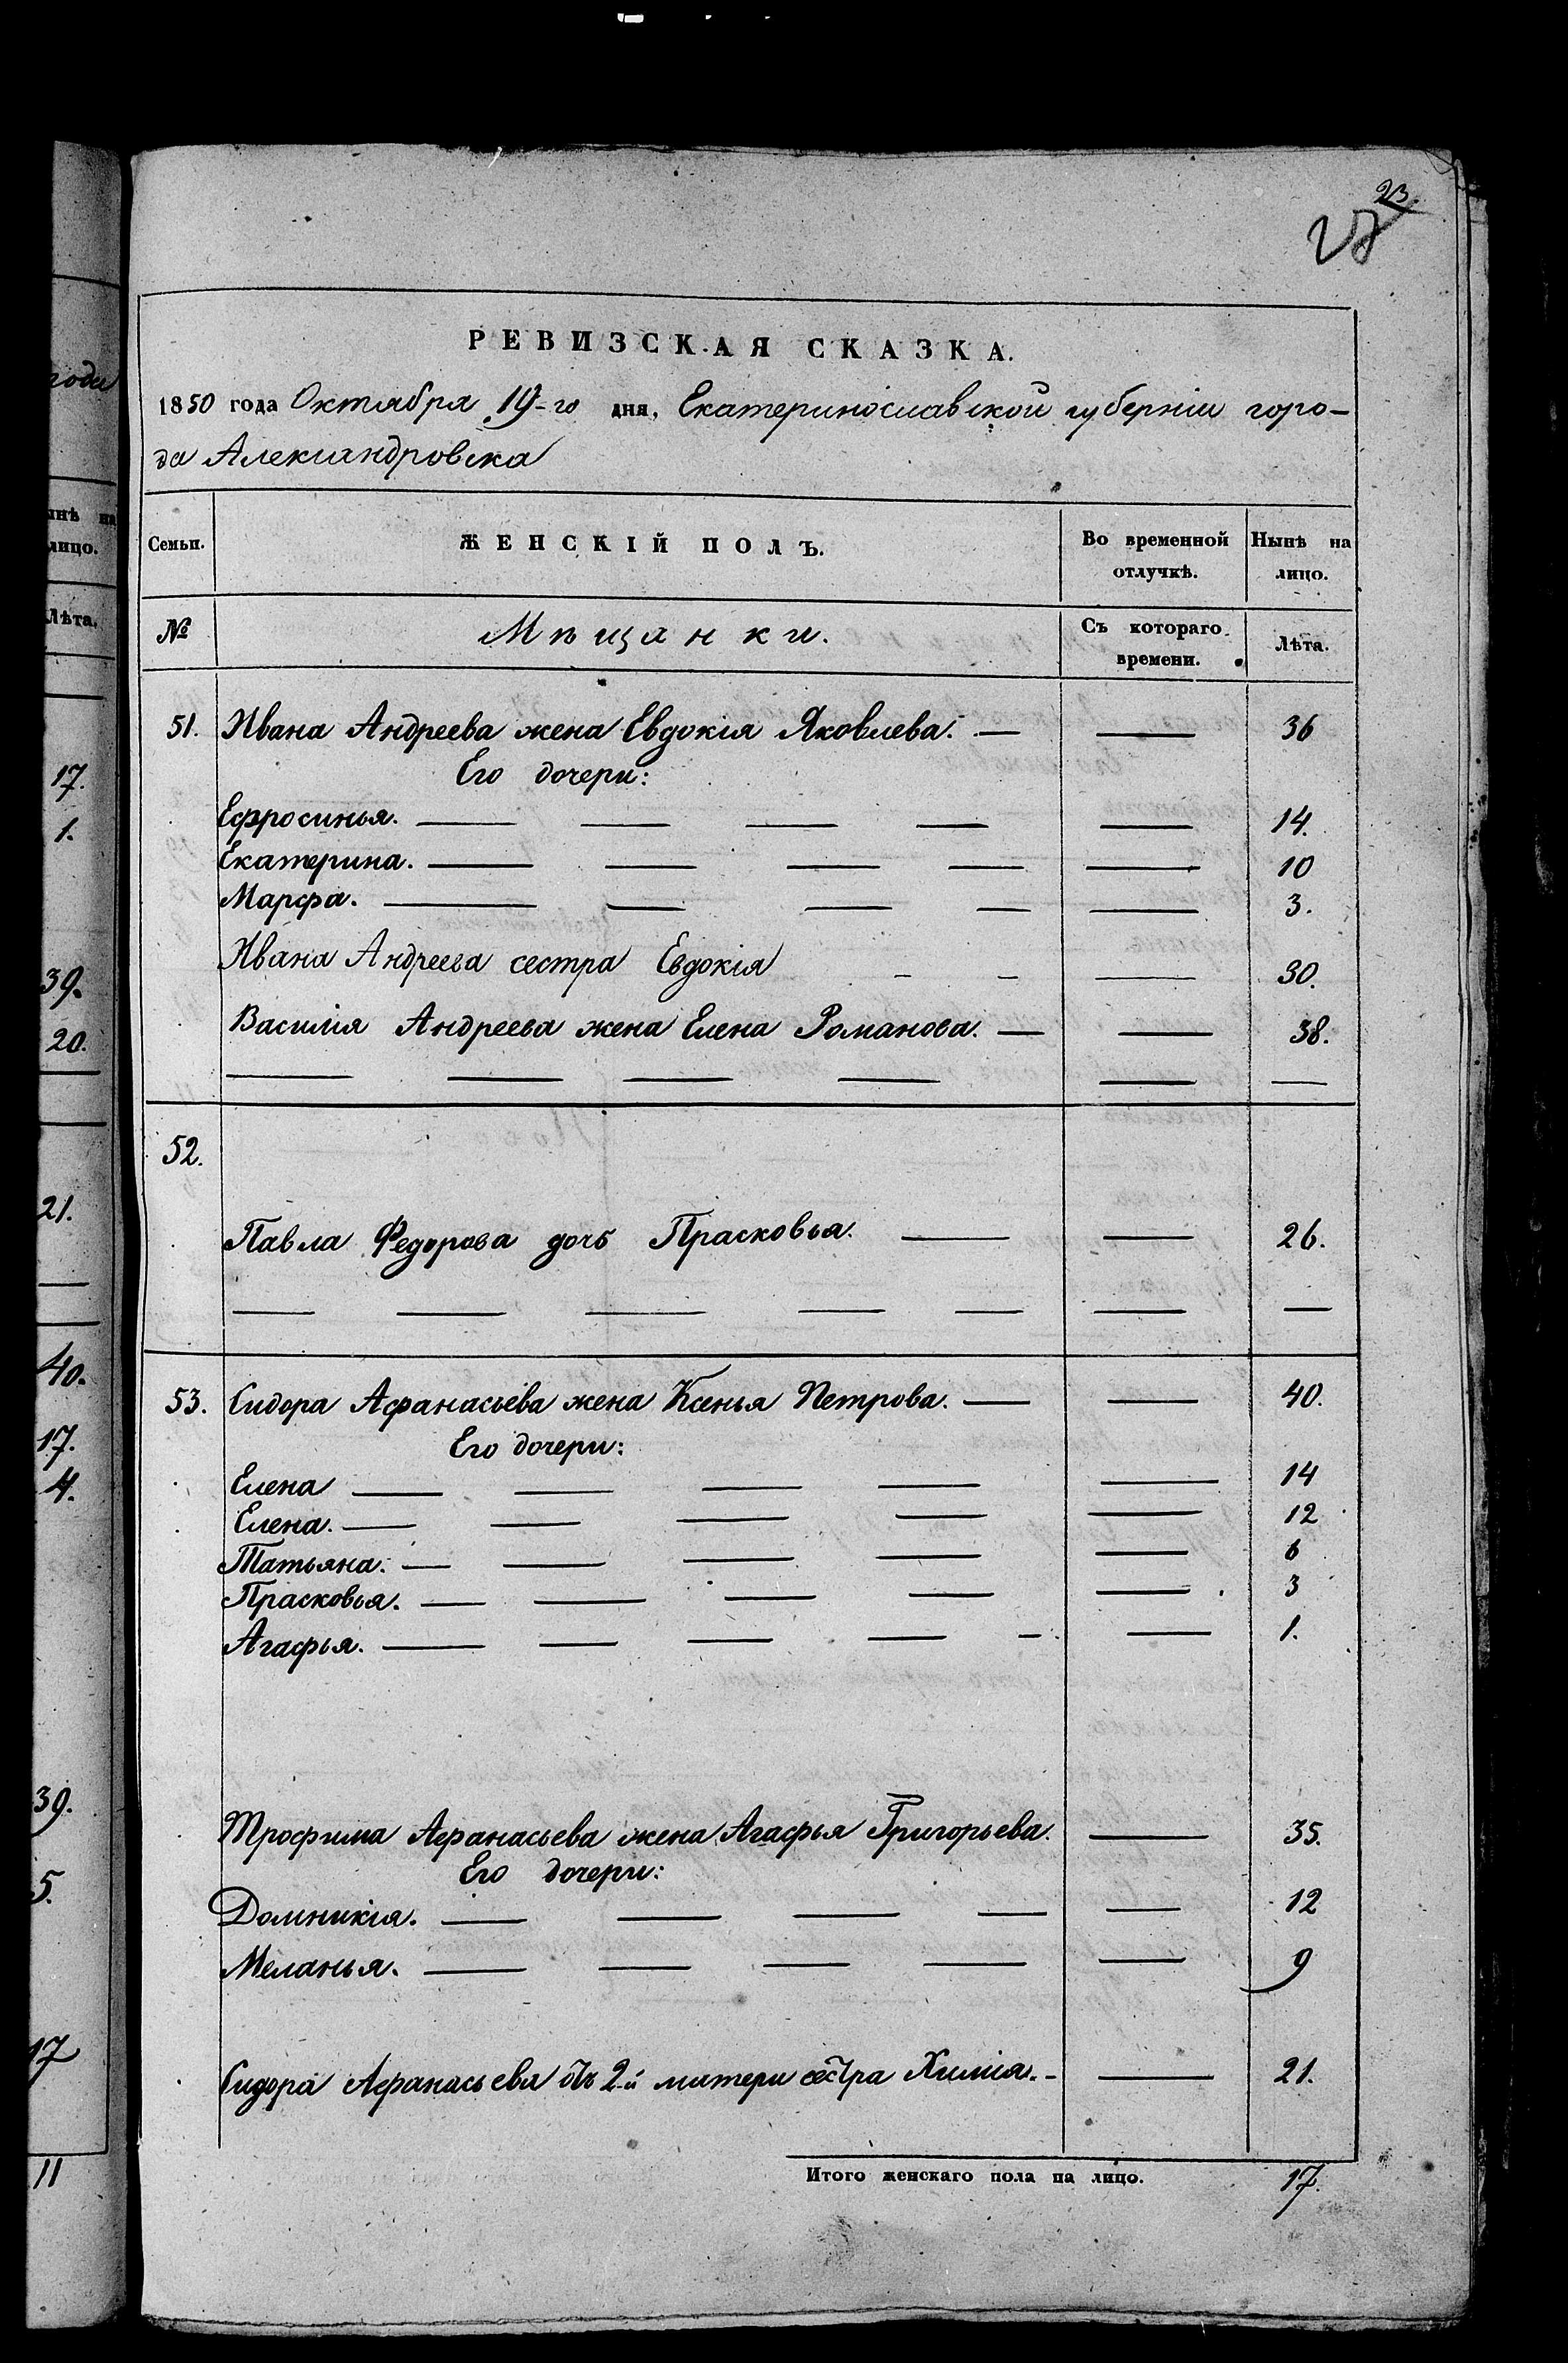 23.
27
РЕВИЗСКАЯ СКАЗКА.
1850 года Октября 19-го дня, Екатеринославской губерніи горо-
да Александровска
Семьи. ЖЕНСКІЙ ПОЛЪ. Во временной отлучкѣ. Нынѣ на лицо.
№ Мѣщанки. Съ котораго времени. Лѣта.
51. Ивана Андреева жена Евдокія Яковлева. — — 36
Его дочери:
Ефросинья. — — — — — 14.
Екатерина. — — — — — 10
Марфа. — — — — — 3.
Ивана Андреева сестра Евдокія — — — 30.
Василія Андреева жена Елена Романова. — — 38.
— — — — — —
52.
Павла Федорова дочь Прасковья. — — 26.
— — — — — — —
53. Сидора Афанасьева жена Ксенья Петрова. — — 40.
Его дочери:
Елена — — — — — 14
Елена. — — — — — 12
Татьяна. — — — — — 6
Прасковья. — — — — — 3
Агафья. — — — — — — 1.
Трофима Афанасьева жена Агафья Григорьева. — 35.
Его дочери:
Домникія. — — — — — 12
Меланья. — — — — — 9
Сидора Афанасьева отъ 2-й матери сестра Химія. — — 21.
Итого женскаго пола на лицо. 17.
года
ынѣ на
лицо.
Лѣта.
17.
1.
39.
20.
21.
40.
17.
4.
39.
5.
17
11